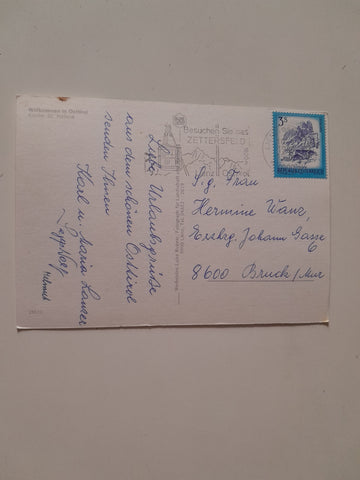 Willkommen in Osttirol
Liebe Urlaubsgrüsse
aus dem schönen Osttirol
senden Ihnen
Karl u. Maria
Helmut
Besuchen Sie das
ZETTERSFELD
3 S
REPUBLIK ÖSTERREICH
Sg. Frau
Hermine Wanz,
Erzhrg. Johann Gasse
6
8600 Bruck/Mur